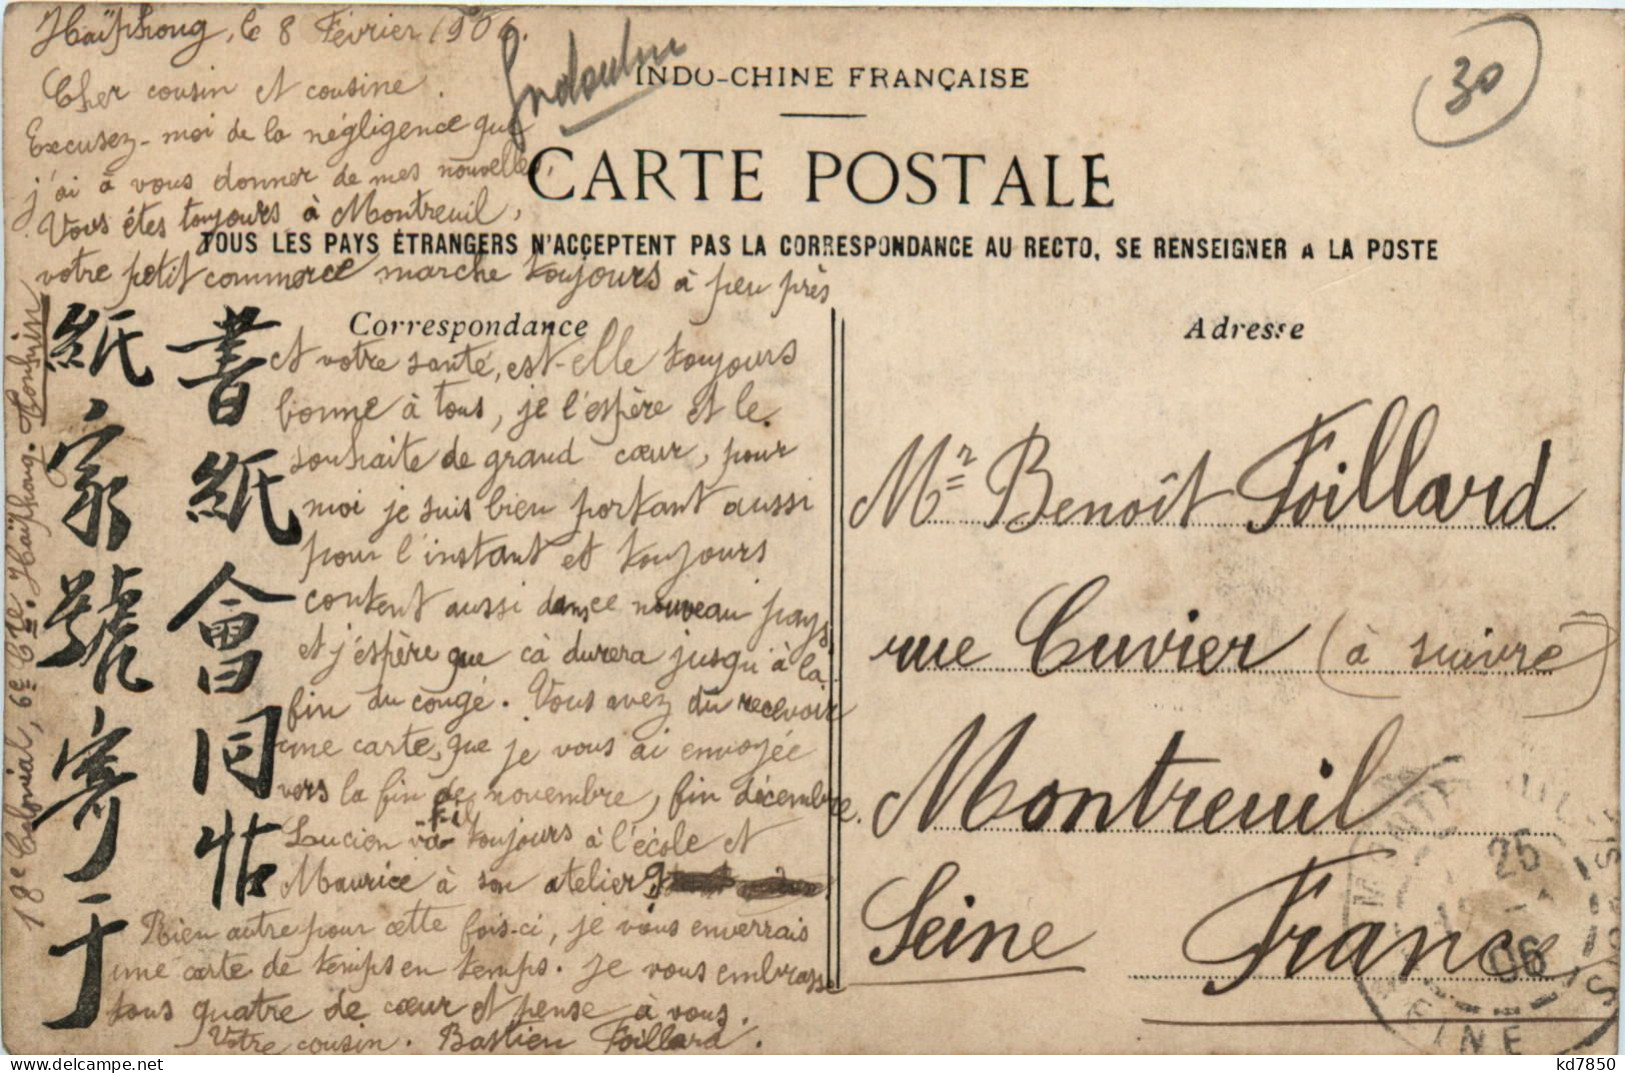 Haïphong, le 8 Février 1906.
Cher cousin et cousine.
Excusez-moi de la négligence que
j'ai à vous donner de mes nouvelles,
Vous êtes toujours à Montreuil,
votre petit commerce marche toujours à peu près
et votre santé, est-elle toujours
bonne à tous, je l'espère et le
souhaite de grand cœur, pour
moi je suis bien portant aussi
pour l'instant et toujours
content aussi dans ce nouveau pays
et j'éspère que cà durera jusqu'à la
fin du congé. Vous avez dû recevoir
une carte, que je vous ai envoyée
vers la fin de novembre, fin décembre.
Lucien va toujours à l'école et
Maurice à son atelier
Rien autre pour cette fois-ci, je vous enverrais
une carte de temps en temps. Je vous embrasse
tous quatre de cœur et pense à vous.
Votre cousin. Bastien Foillard.
18e Colonial, 6e Cie. Haïphong. Tonkin
書紙會同帖
紙家號寄于
INDO-CHINE FRANÇAISE
30
CARTE POSTALE
TOUS LES PAYS ÉTRANGERS N'ACCEPTENT PAS LA CORRESPONDANCE AU RECTO, SE RENSEIGNER A LA POSTE
Correspondance
Adresse
Mr Benoît Foillard
rue Cuvier (à suivre)
Montreuil
Seine France
25
06
SEINE
kd7850